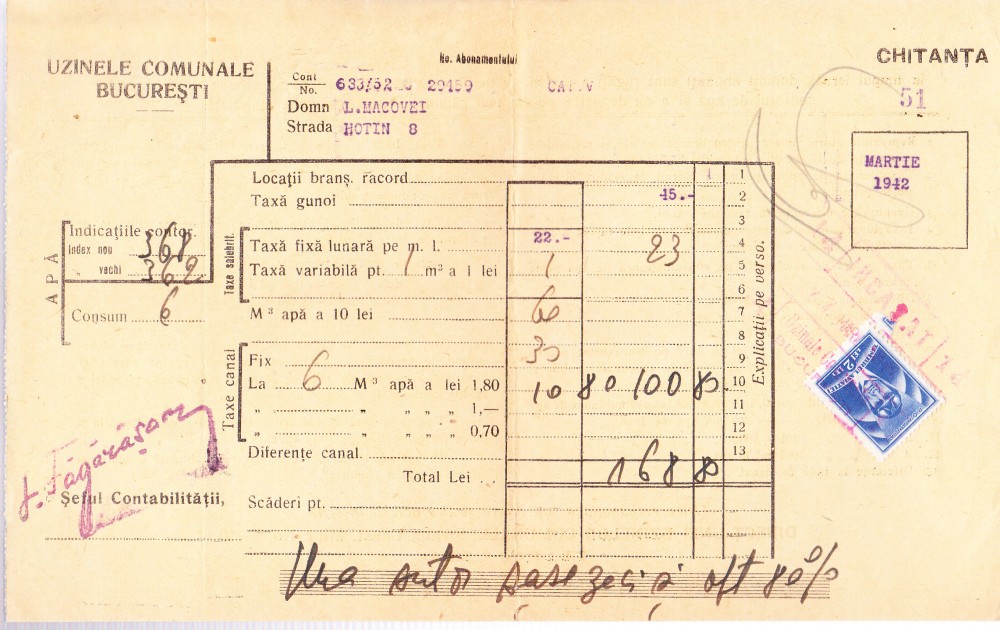 UZINELE COMUNALE
BUCUREȘTI
No. Abonamentului
CHITANȚA
Cont No. 633/52 29159 CAT.V
51
Domn L.MACOVEI
Strada HOTIN 8
MARTIE
1942
Locații branș. racord 1
Taxă gunoi 45.- 2
3
Taxe salebrit.
Taxă fixă lunară pe m. l. 22.- 23 4
Taxă variabilă pt. 1 m³ a 1 lei 1 5
6
M³ apă a 10 lei 60 7
8
APĂ
Indicațiile contor.
Index nou 368
vechi 362
Consum 6
Taxe canal
Fix 30 9
La 6 M³ apă a lei 1,80 10 80 100 80 10
„ „ „ „ „ 1,— 11
„ „ „ „ „ 0,70 12
Diferențe canal. 13
Total Lei 168 80
Scăderi pt.
Explicații pe verso.
LEI 2 LEI
J. Făgărășanu
Șeful Contabilității,
Una sută șasezeci și opt 80%